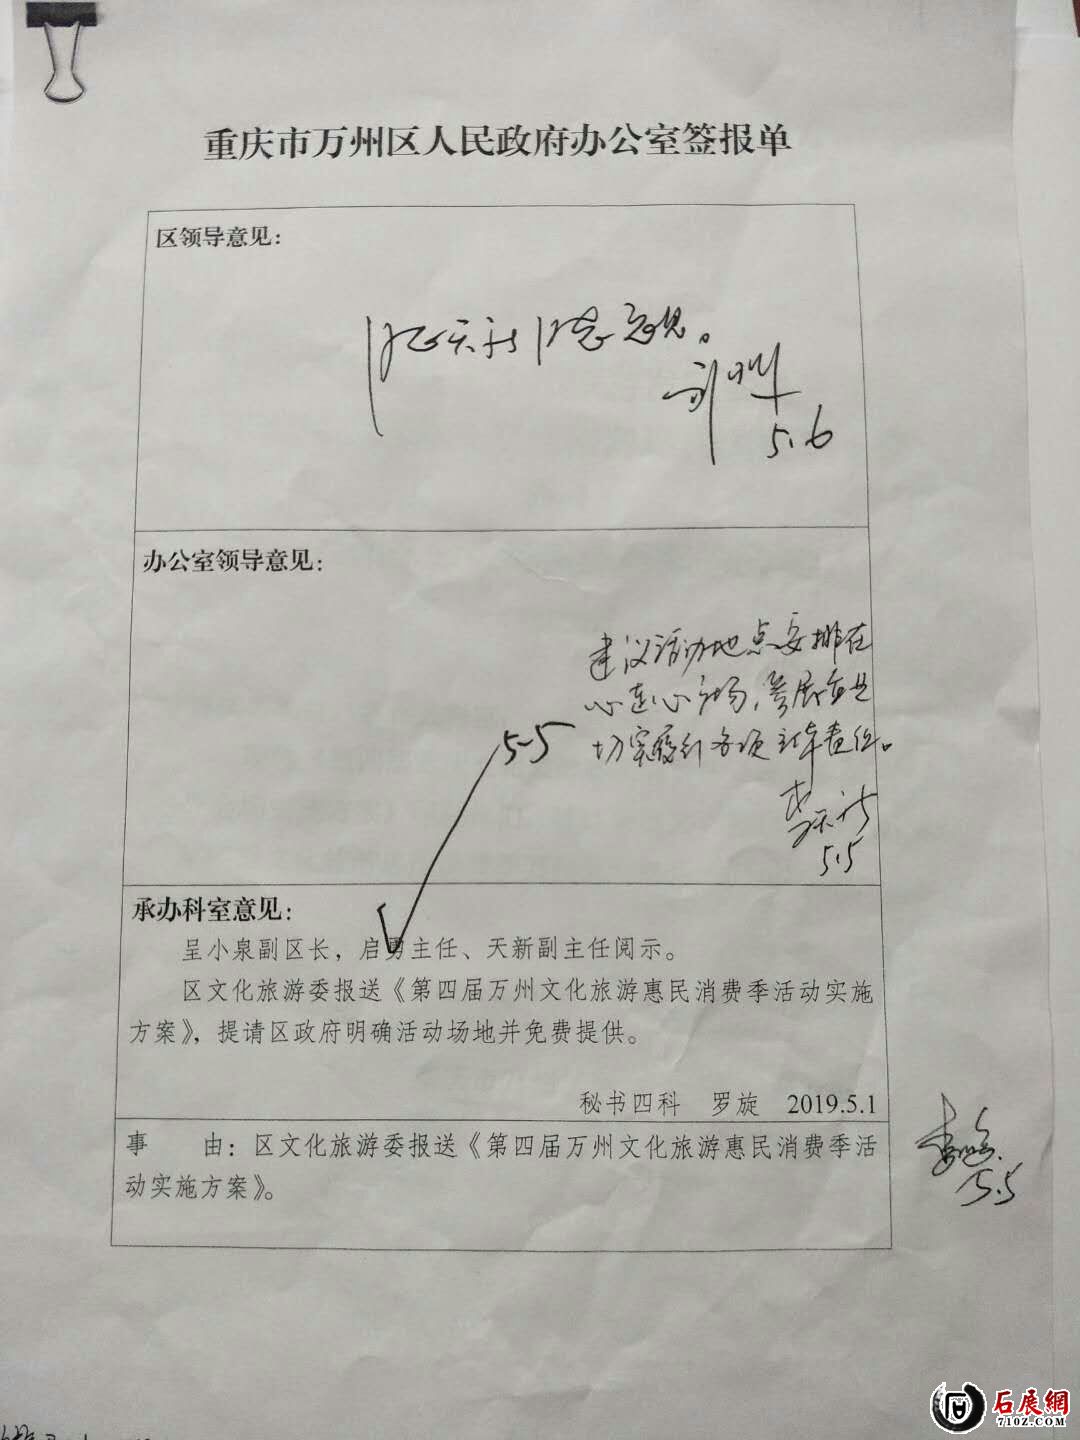 重庆市万州区人民政府办公室签报单
区领导意见：
意见。
5.6
办公室领导意见：
建议活动地点安排在
心连心广场，
切实履行各项主体责任。
5.5
5.5
承办科室意见：
呈小泉副区长，启勇主任、天新副主任阅示。
区文化旅游委报送《第四届万州文化旅游惠民消费季活动实施
方案》，提请区政府明确活动场地并免费提供。
秘书四科 罗旋 2019.5.1
事 由：区文化旅游委报送《第四届万州文化旅游惠民消费季活
动实施方案》。
5.5
石展網
710Z.COM